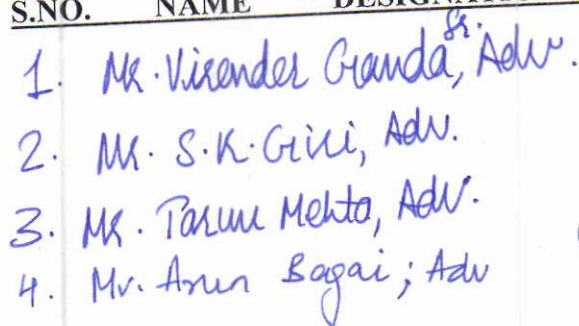 S.NO. NAME DESIGNATION
1. Mr. Virender Ganda, Sr. Adv.
2. Mr. S.K. Giri, Adv.
3. Mr. Tarun Mehta, Adv.
4. Mr. Arun Bagai; Adv